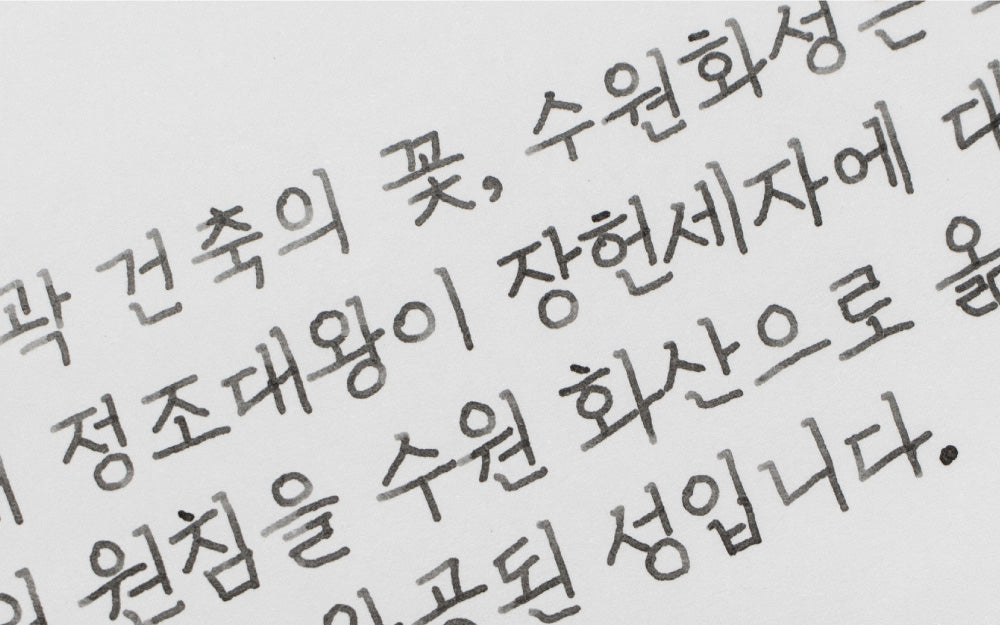 곽 건축의 꽃, 수원화성은
정조대왕이 장헌세자에 대
원침을 수원 화산으로 옮
완공된 성입니다.